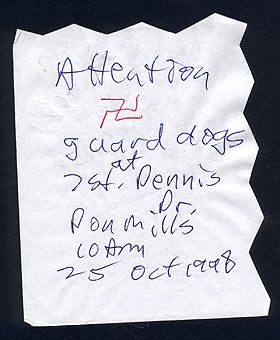 Attention
卐
guard dogs
at
7 St. Dennis
Dr.
Don Mills
10 Am
25 Oct 1998